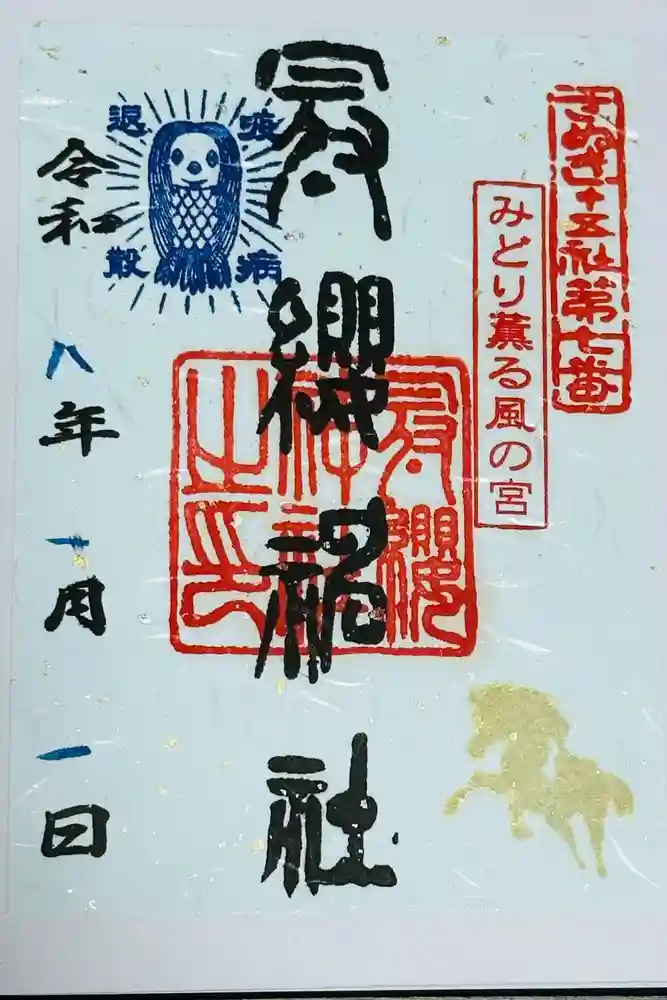 さぬき十五社第七番
みどり薫る風の宮
冠纓神社
冠纓
神社
之印
疫病
退散
令和八年一月一日